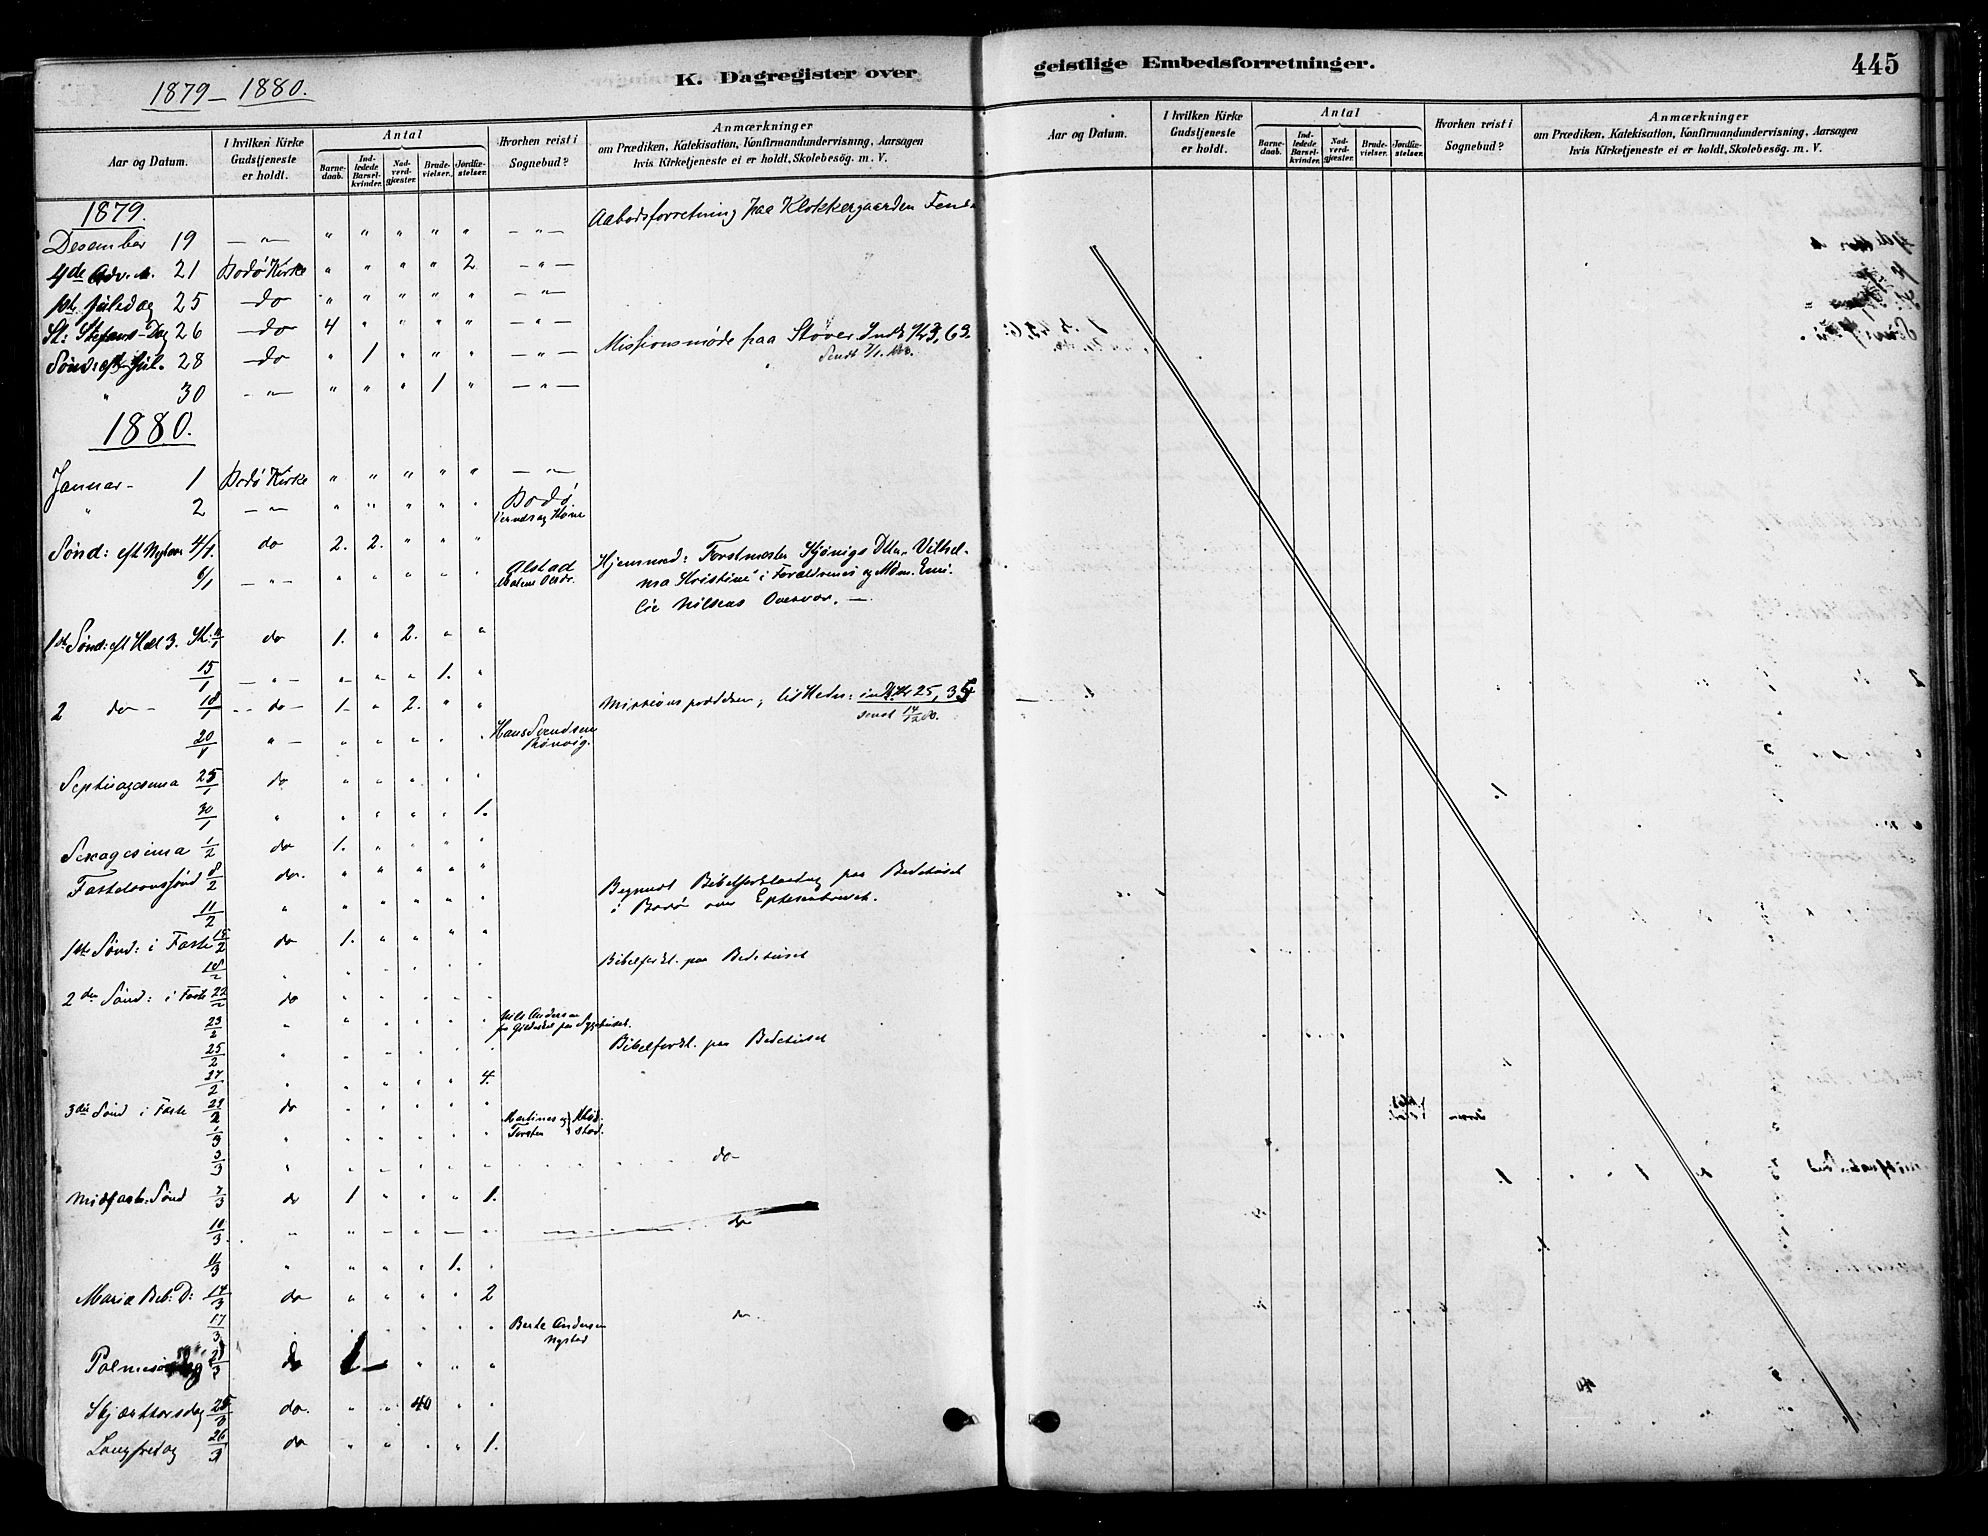 1879 - 1880.
K. Dagregister over
geistlige Embedsforretninger.
445
Aar og Datum.
I hvilken Kirke Gudstjeneste er holdt.
Antal
Barnedaab.
Indledede Barselkvinder.
Nadverdgjæster.
Brudevielser.
Jordfæstelser.
Hvorhen reist i Sognebud?
Anmærkninger
om Prædiken, Katekisation, Konfirmandundervisning, Aarsagen
hvis Kirketjeneste ei er holdt, Skolebesög. m. V.
Aar og Datum.
I hvilken Kirke Gudstjeneste er holdt.
Antal
Barnedaab.
Indledede Barselkvinder.
Nadverdgjæster.
Brudevielser.
Jordfæstelser.
Hvorhen reist i Sognebud?
Anmærkninger
om Prædiken, Katekisation, Konfirmandundervisning, Aarsagen
hvis Kirketjeneste ei er holdt, Skolebesög. m. V.
1879.
Desember 19 — " — " " " " " — " — Aabodsforretning paa Klokkergaarden
4de Adv. 21 Bodø Kirke " " " " 2 — " —
1st Juledag 25 — do " " " " " — " —
St: Stefans-Dag 26 — do — 4 " " " " — " —
Sønd: eft Jul. 28 — do " 1 " " " — " — Missionsmøde paa Støver
" 30 — " — " " " 1 " — " —
1880.
Januar - 1 Bodø Kirke " " " " " — " —
" 2 — " — " " " " " Bodø
Sønd: eft Nytaar 4/1. do 2. 2. " " "
6/1 — " — " " " " " Alstad Hjemmed: Forstmester Hjønigs Dtter Vilhel-
ma Kristine i Forældrenes og Mdm. Emi-
lie Nilsens Overvær. —
1ste Sønd: eft Hel 3. K. 11/1 do 1. " 2. " "
15/1 — " — " " " 1. "
2 do - 18/1 - do - 1. " 2. " "
20/1 " — " " " " " Hans Svendsen
Rønvig.
Septuagesima 25/1 do " " " " "
30/1 " " " " " 1.
Sexagesima 1/2 do 1. " " " "
Fastelavnssønd 8/2 do. " " " " " Begyndt Bibelforklaring paa Bedehuset
11/2 " " " " " " i Bodø over Epheserbrevet.
1ste Sønd: i Faste 15/2 do 1. " " " "
18/2 " " " " " " Bibelforkl. paa Bedehuset
2den Sønd: i Faste 22/2 do " " " " "
23/2 " " " " " " Nils Andersen
fra Gildeskal paa Sygehuset.
25/2 " " " " " " Bibelforkl. paa Bedehuset
27/2 " " " " " 4.
3die Sønd i Faste 29/2 do " " " " "
1/3 " " " " " "
3/3 " " " " " " do
Midfaste. Sønd 7/3 do 1 " " " 1.
10/3 " " " " " " do
11/3 " " " " 1. "
Mariæ Beb: D: 14/3 do " " " " 2
17/3 " " " " " " Berte Andersen do
Nystad
Palmesøndag 21/3 do 1 — " " "
Skjærthorsdag 25/3 do. " " 40 " "
Langfredag 26/3 do " " " " 1.